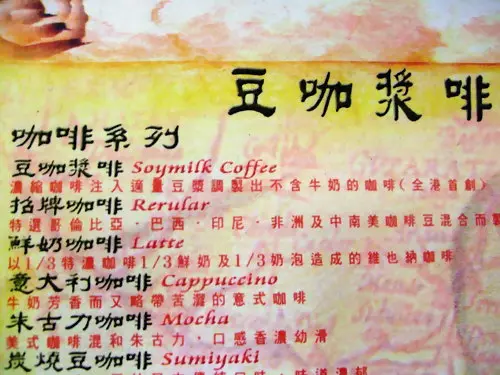 豆咖漿啡
咖啡系列
豆咖漿啡 Soymilk Coffee
濃縮咖啡注入適量豆漿調製出不含牛奶的咖啡(全港首創)
招牌咖啡 Rerular
特選哥倫比亞．巴西．印尼．非洲及中南美咖啡豆混合而製
鮮奶咖啡 Latte
以1/3特濃咖啡1/3鮮奶及1/3奶泡造成的維也納咖啡
意大利咖啡 Cappuccino
牛奶芳香而又略帶苦澀的意式咖啡
朱古力咖啡 Mocha
美式咖啡混和朱古力．口感香濃幼滑
炭燒豆咖啡 Sumiyaki